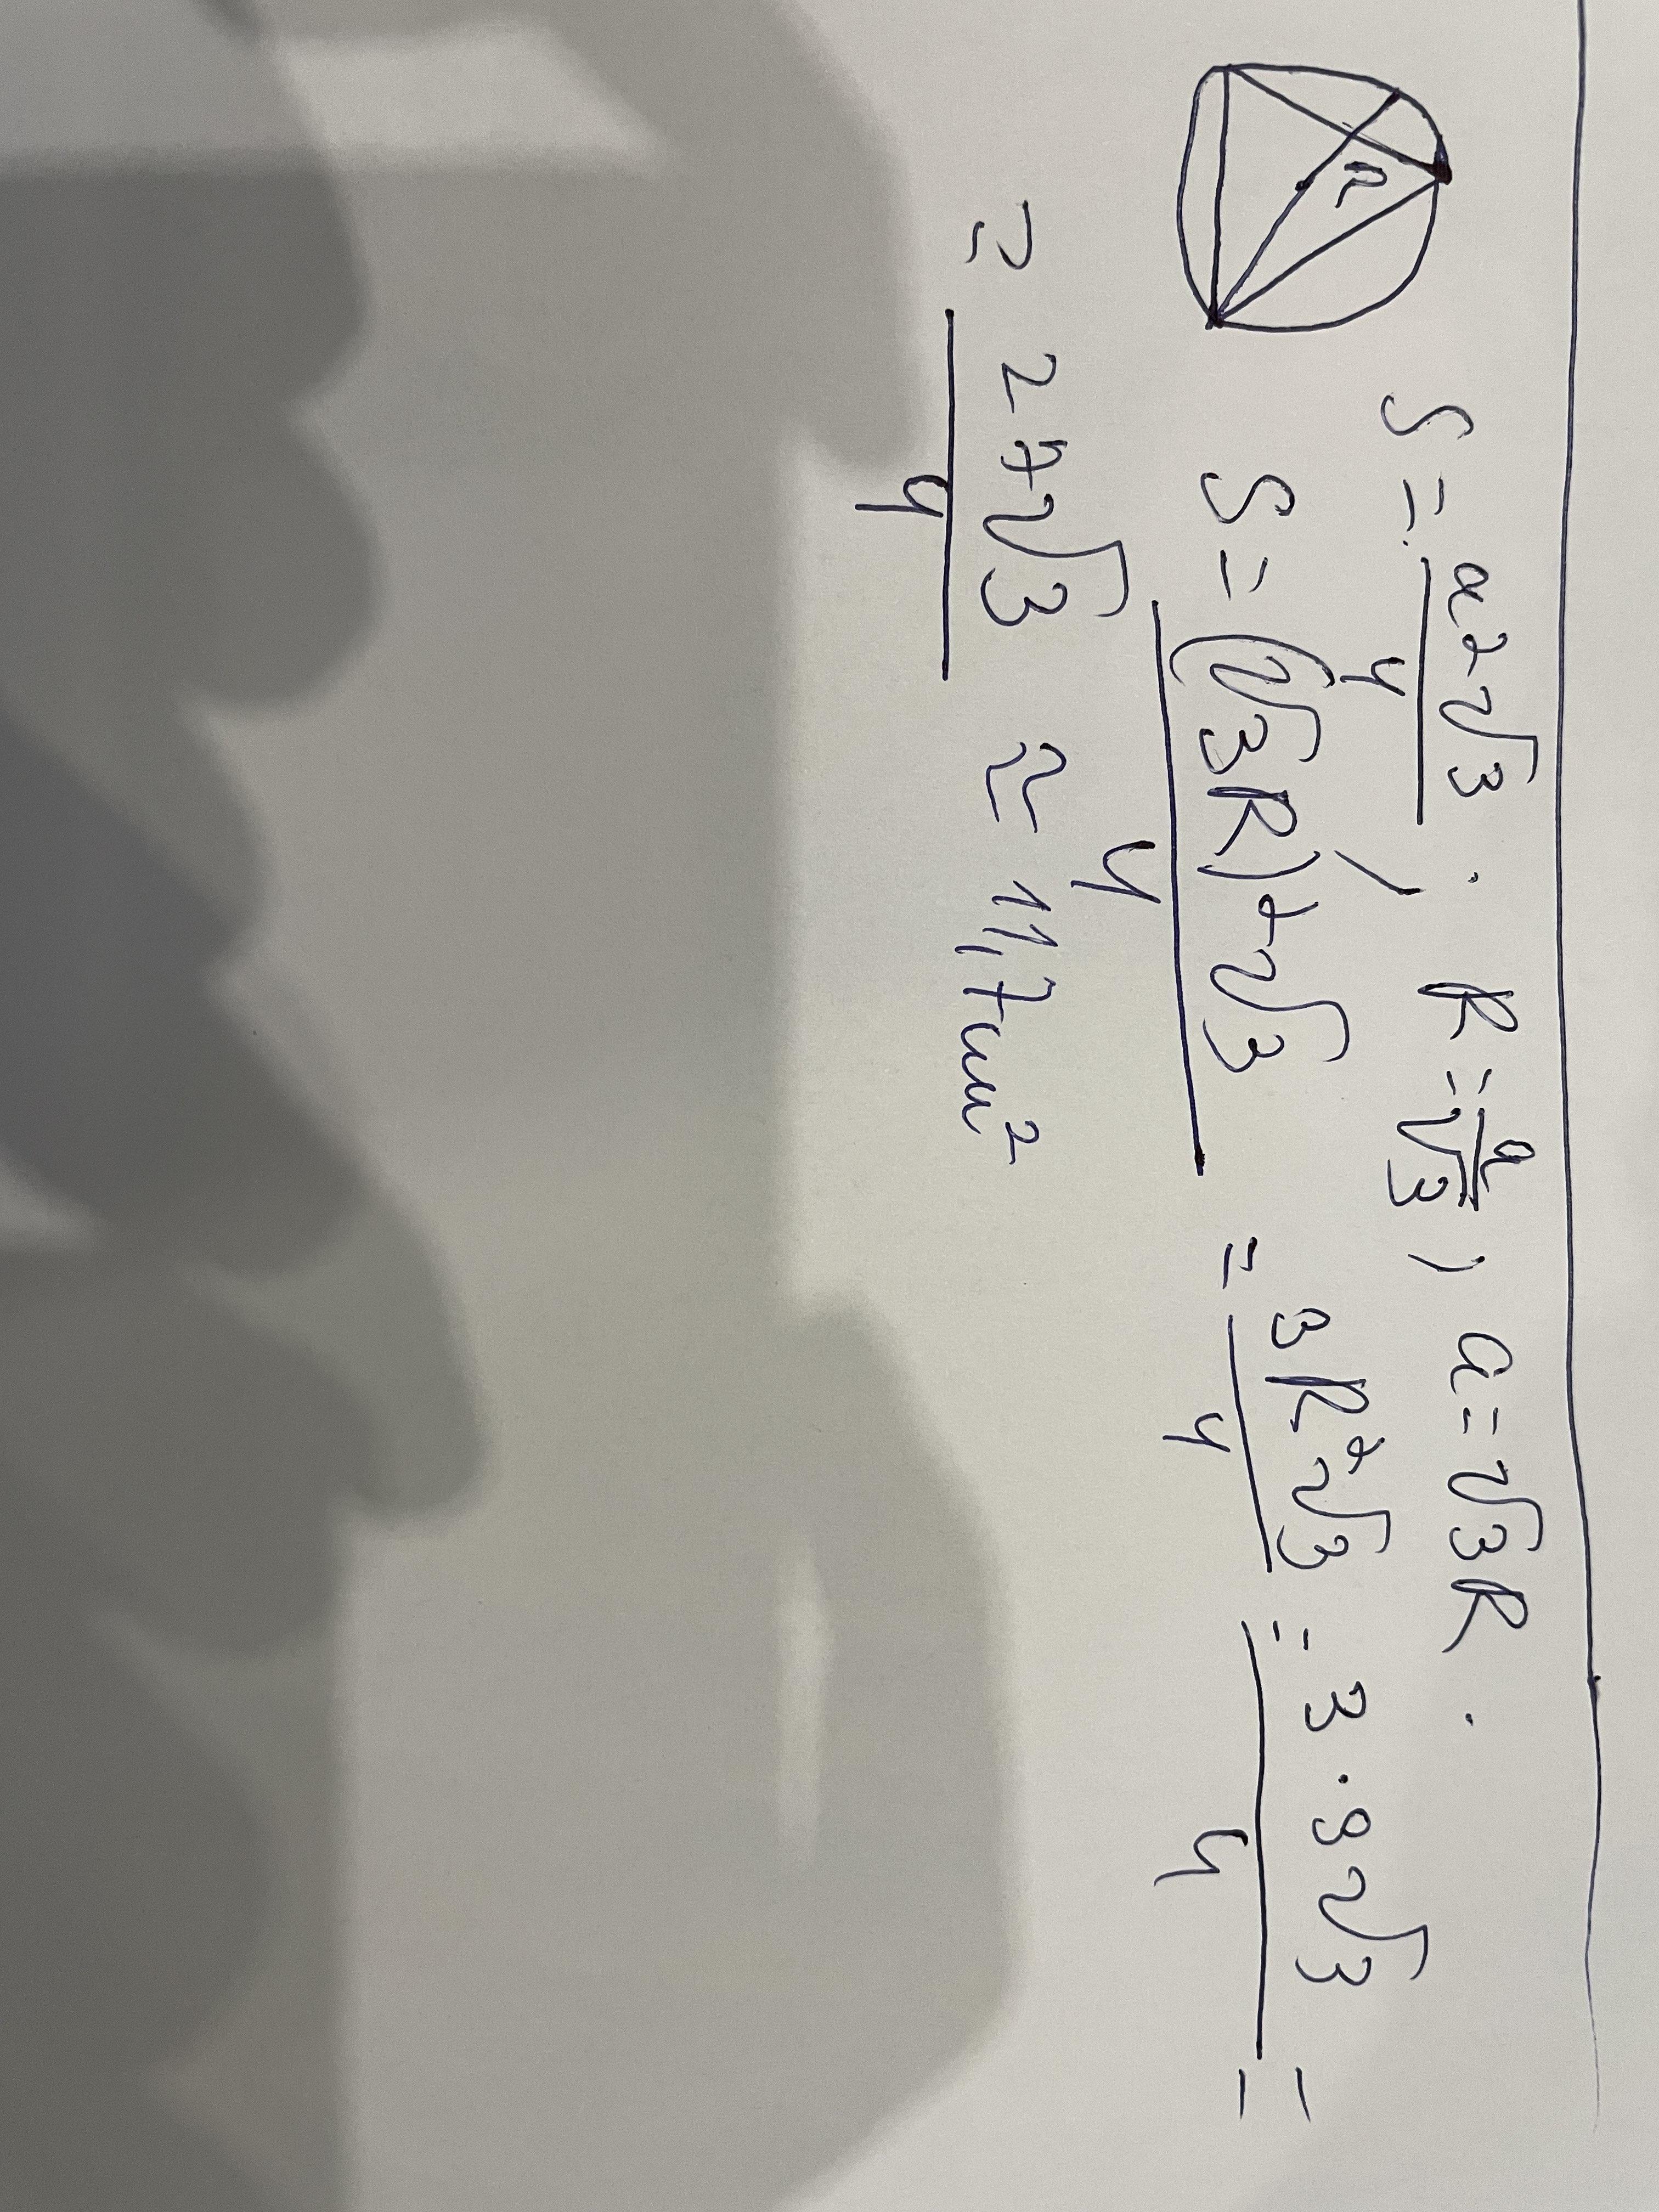 R
S = a²√3 / 4 ; R = a/√3 ; a = √3R.
S = (√3R)²√3 / 4 = 3R²√3 / 4 = 3·9√3 / 4 =
= 27√3 / 4 ≈ 11,7 см²